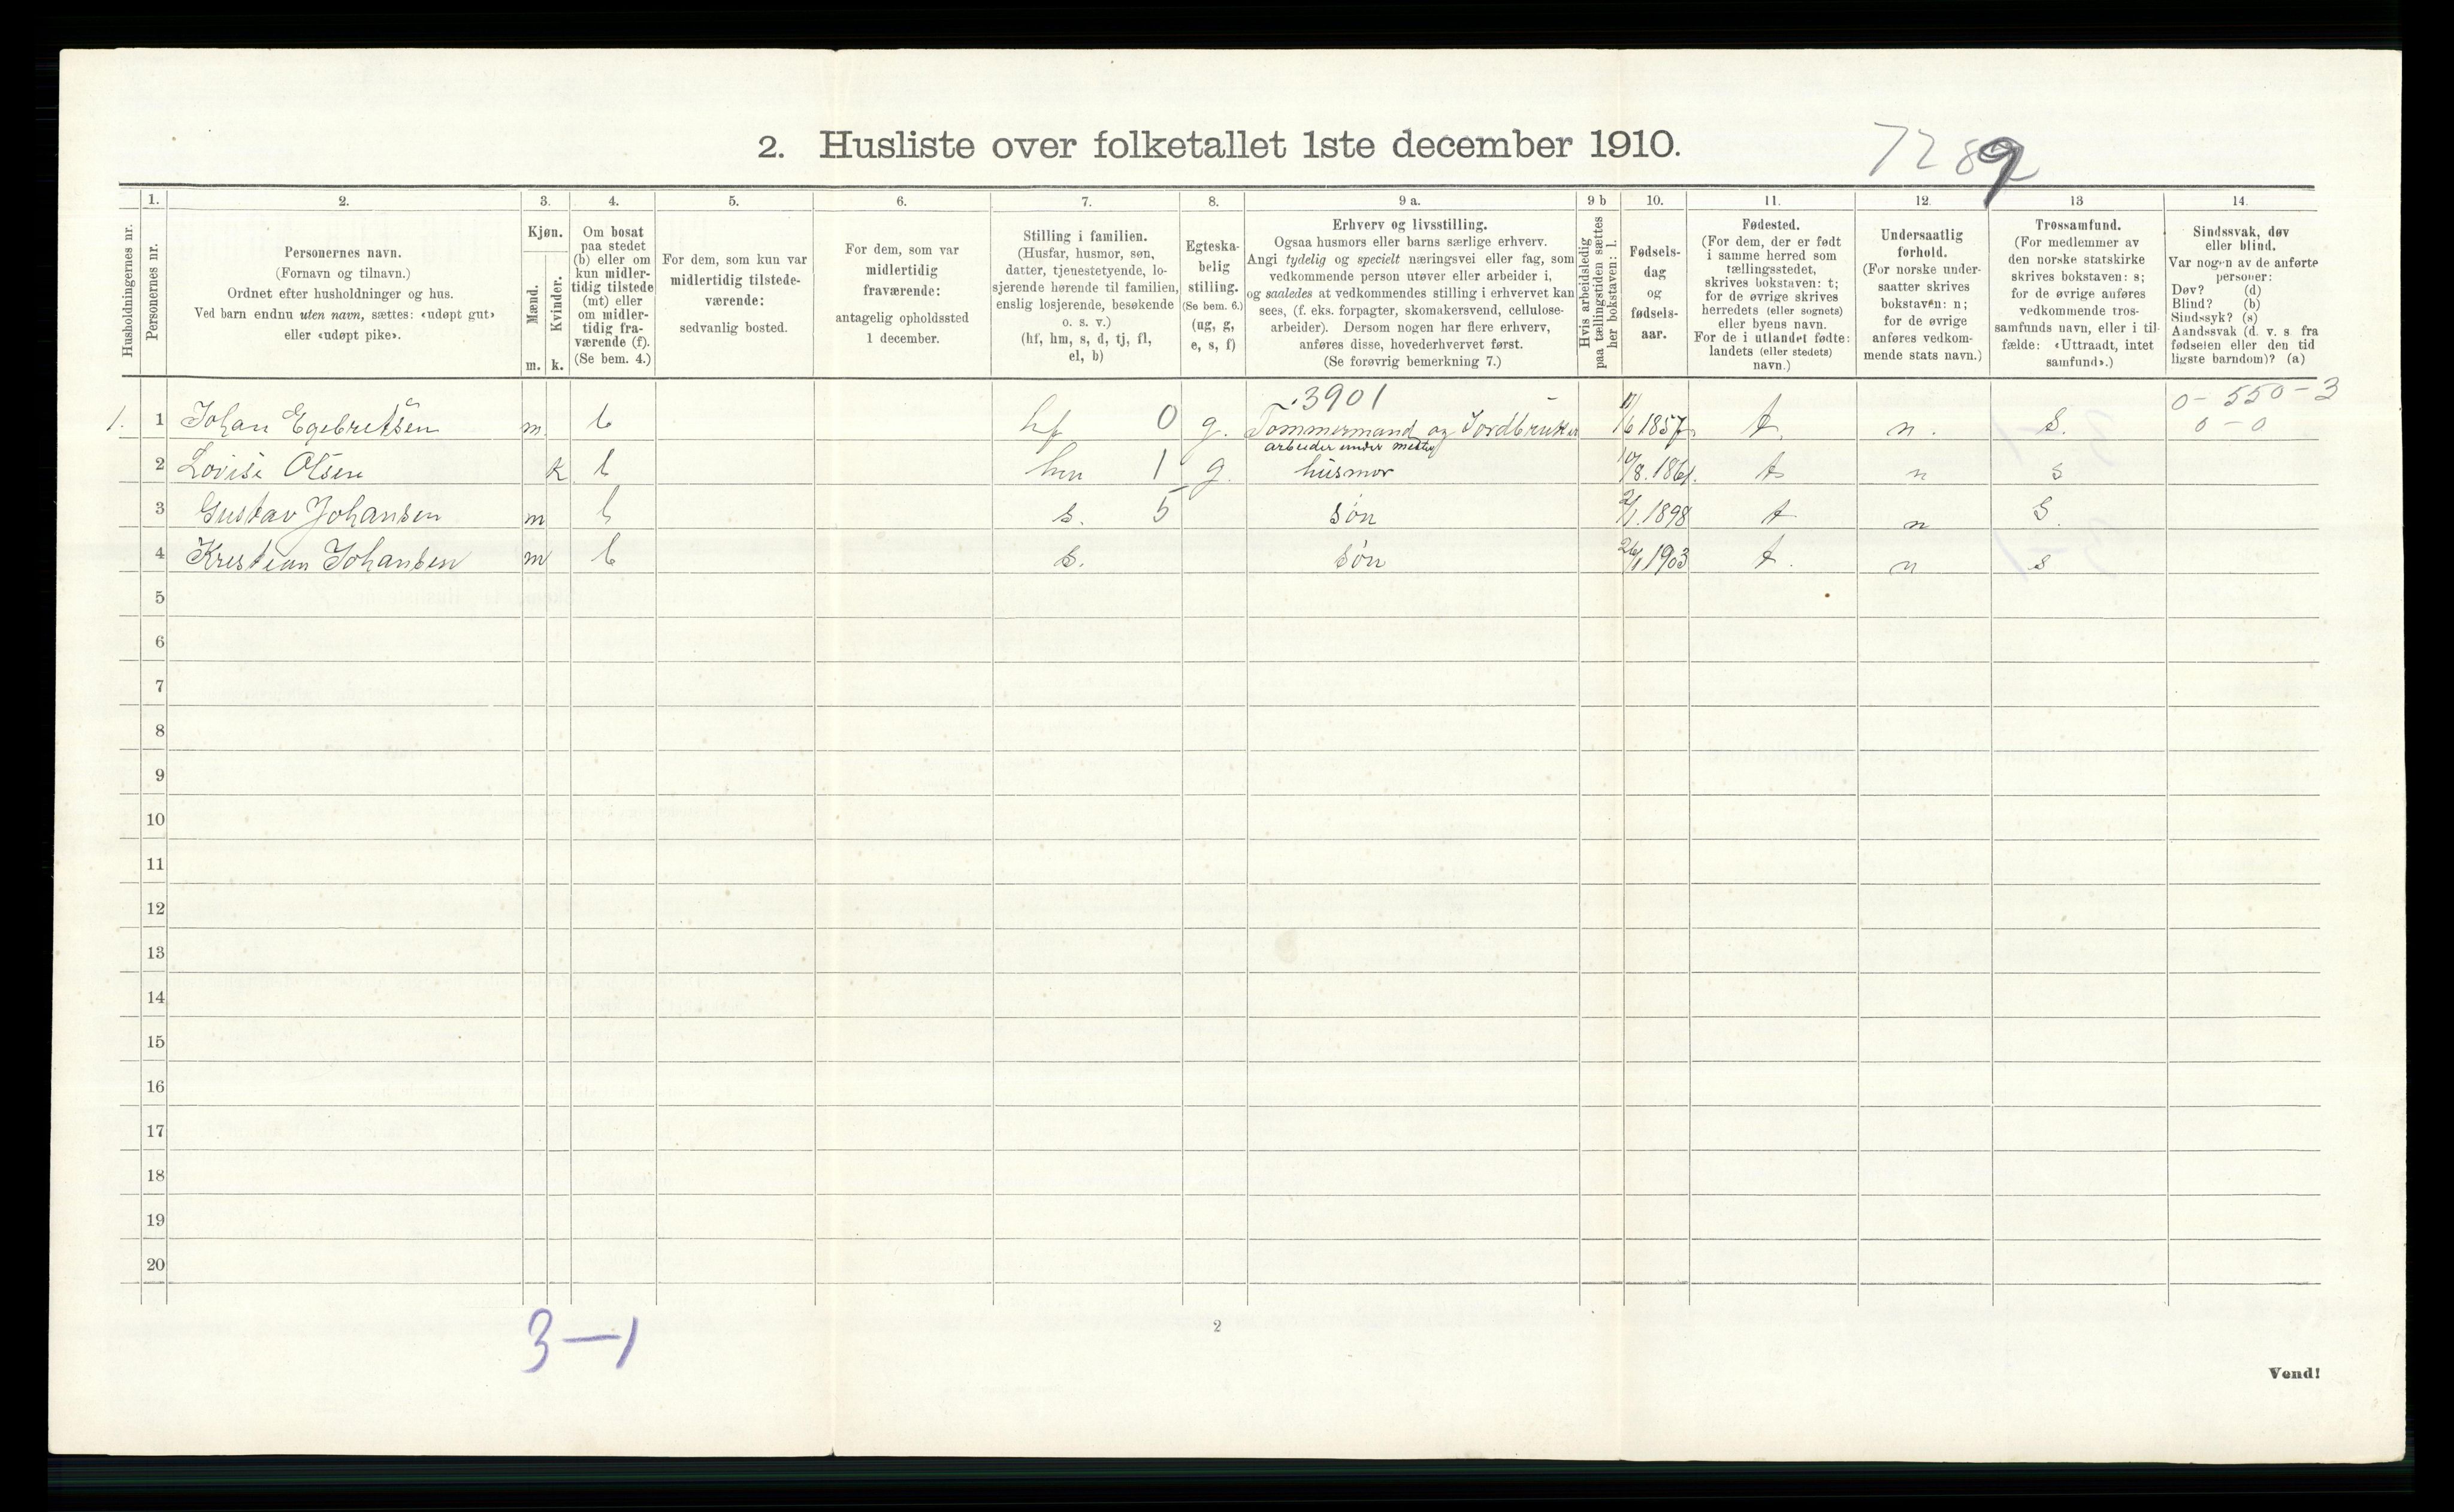 2. Husliste over folketallet 1ste december 1910.
7289
Husholdningernes nr.
1.
Personernes nr.
2.
Personernes navn.
(Fornavn og tilnavn.)
Ordnet efter husholdninger og hus.
Ved barn endnu uten navn, sættes: «udøpt gut»
eller «udøpt pike».
3.
Kjøn.
Mænd.
Kvinder.
m. k.
4.
Om bosat
paa stedet
(b) eller om
kun midler-
tidig tilstede
(mt) eller
om midler-
tidig fra-
værende (f).
(Se bem. 4.)
5.
For dem, som kun var
midlertidig tilstede-
værende:
sedvanlig bosted.
6.
For dem, som var
midlertidig
fraværende:
antagelig opholdssted
1 december.
7.
Stilling i familien.
(Husfar, husmor, søn,
datter, tjenestetyende, lo-
sjerende hørende til familien,
enslig losjerende, besøkende
o. s. v.)
(hf, hm, s, d, tj, fl,
el, b)
8.
Egteska-
belig
stilling.
(Se bem. 6.)
(ug, g,
e, s, f)
9 a.
Erhverv og livsstilling.
Ogsaa husmors eller barns særlige erhverv.
Angi tydelig og specielt næringsvei eller fag, som
vedkommende person utøver eller arbeider i,
og saaledes at vedkommendes stilling i erhvervet kan
sees, (f. eks. forpagter, skomakersvend, cellulose-
arbeider). Dersom nogen har flere erhverv,
anføres disse, hovederhvervet først.
(Se forøvrig bemerkning 7.)
9 b
Hvis arbeidsledig
paa tællingstiden sættes
her bokstaven: l.
10.
Fødsels-
dag
og
fødsels-
aar.
11.
Fødested.
(For dem, der er født
i samme herred som
tællingsstedet,
skrives bokstaven: t;
for de øvrige skrives
herredets (eller sognets)
eller byens navn.
For de i utlandet fødte:
landets (eller stedets)
navn.)
12.
Undersaatlig
forhold.
(For norske under-
saatter skrives
bokstaven: n;
for de øvrige
anføres vedkom-
mende stats navn.)
13
Trossamfund.
(For medlemmer av
den norske statskirke
skrives bokstaven: s;
for de øvrige anføres
vedkommende tros-
samfunds navn, eller i til-
fælde: «Uttraadt, intet
samfund».)
14.
Sindssvak, døv
eller blind.
Var nogen av de anførte
personer:
Døv? (d)
Blind? (b)
Sindssyk? (s)
Aandssvak (d. v. s. fra
fødselen eller den tid-
ligste barndom)? (a)
3901 0-550-3
1. 1 Johan Egebretsen m b hf 0 g. Tømmermand og Jordbruker 1857 t. n. S. 0-0
arbeider under mester
2 Lovise Olsen k b hm 1 g. husmor 8.1861. t n s
3 Gustav Johansen m b s. 5 søn 1898 t n S.
4 Kristian Johansen m b s. søn 26/1 1903 t. n s
5
6
7
8
9
10
11
12
13
14
15
16
17
18
19
20
3-1
2
Vend!